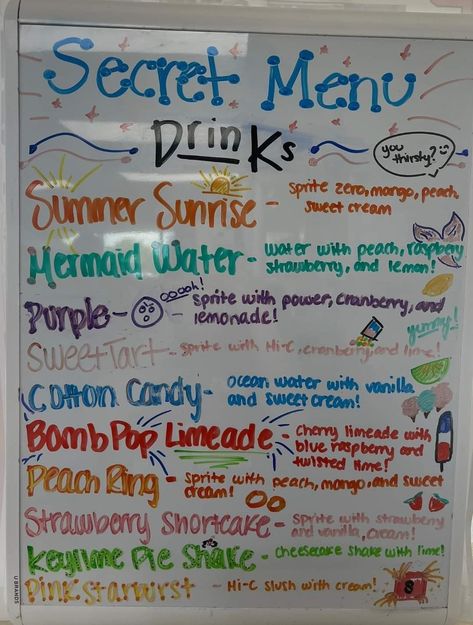 Secret Menu
Drinks
you
thirsty?
Summer Sunrise - sprite zero, mango, peach,
sweet cream
Mermaid Water - water with peach, raspbery
strawberry, and lemon!
ooooh!
Purple - sprite with power, cranberry, and
lemonade!
yummy!
SweetTart - sprite with Hi-C, cranberry, and lime!
Cotton Candy - ocean water with vanilla
and sweet cream!
Bomb Pop Limeade - cherry limeade with
blue raspberry and
twisted lime!
Peach Ring - sprite with peach, mango, and sweet
cream!
Strawberry Shortcake - sprite with strawberry
and vanilla, cream!
Keylime Pie Shake - cheesecake shake with lime!
Pink starburst - Hi-C slush with cream!
S
UBRANDS